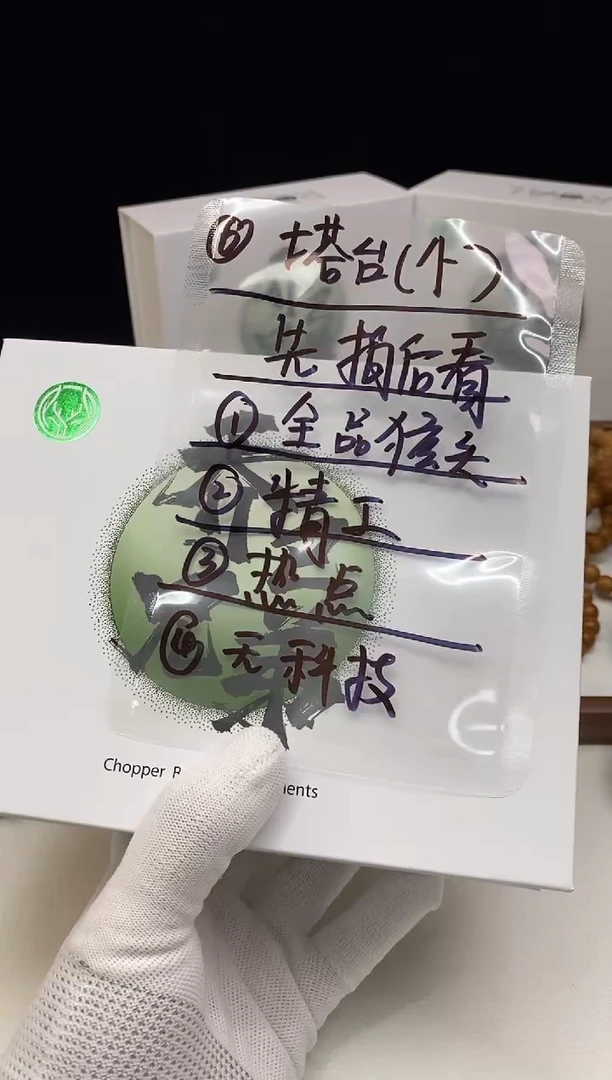 ⑥ 塔台(个)
先损后看
① 全品猴头
② 精工
③ 热点
④ 无科技
Chopper